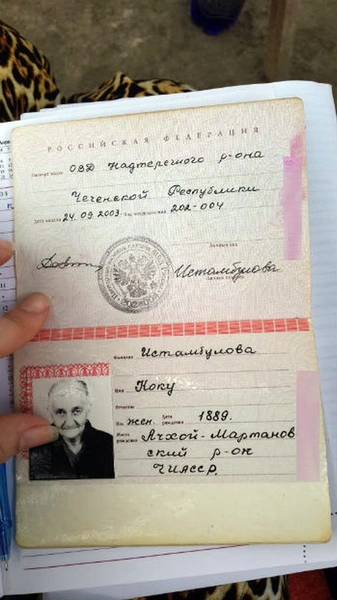 РОССИЙСКАЯ ФЕДЕРАЦИЯ
Паспорт выдан ОВД Надтеречного р-она
Чеченской Республики
Дата выдачи 24.09.2003 Код подразделения 202-004
Личный код
Истамбулова
Фамилия Истамбулова
Имя Коку
Отчество
Пол жен. Дата рождения 1889.
Место рождения Ачхой-Мартанов
ский р-он
ЧИАССР.